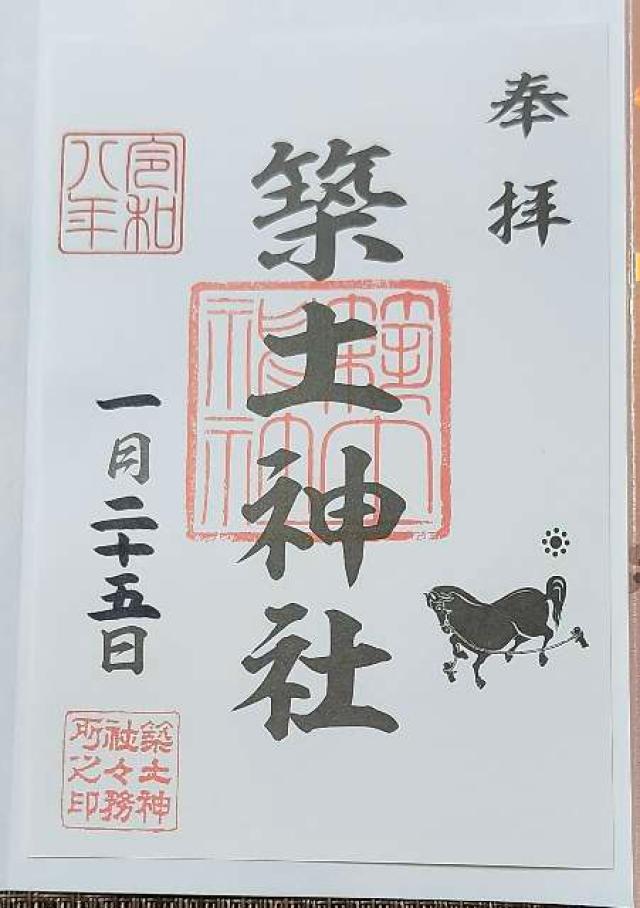 奉拝
築土神社
築土神社
令和八年
一月二十五日
築土神社々務所之印